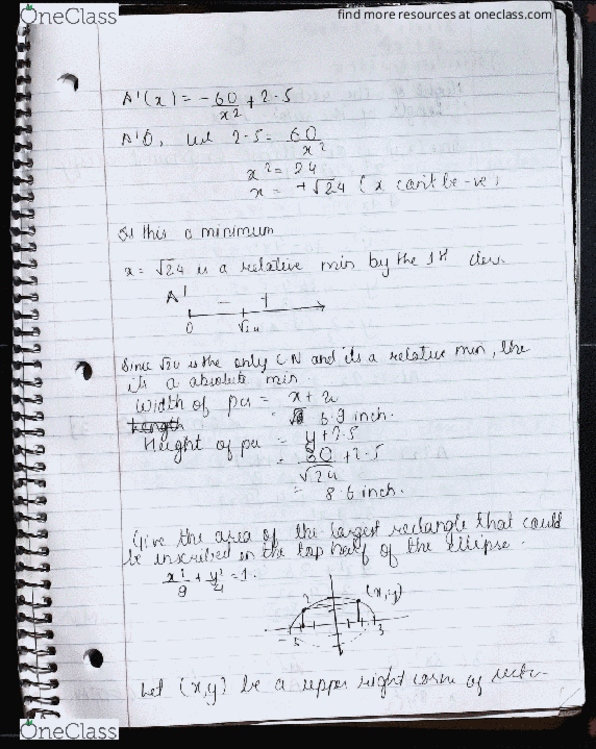 OneClass
find more resources at oneclass.com
A'(x) = -60/x² + 2.5
A'0, 2.5 = 60/x²
x² = 24
x = +√24 (x can't be -ve)
this a minimum
x = √24 is a relative min by the 1st
A' - +
0 √24
Since √24 is the only CN and its a relative min,
its a absolute min.
Width of = x + 2
Length 6.9 inch.
Height of = y + 2.5
= 30/√24 + 2.5
= 8.6 inch.
Give the area of the largest rectangle that could
be inscribed in the top half of the ellipse.
x²/9 + y²/4 = 1.
2 (x,y)
3
Let (x,y) be a upper right corner of
OneClass